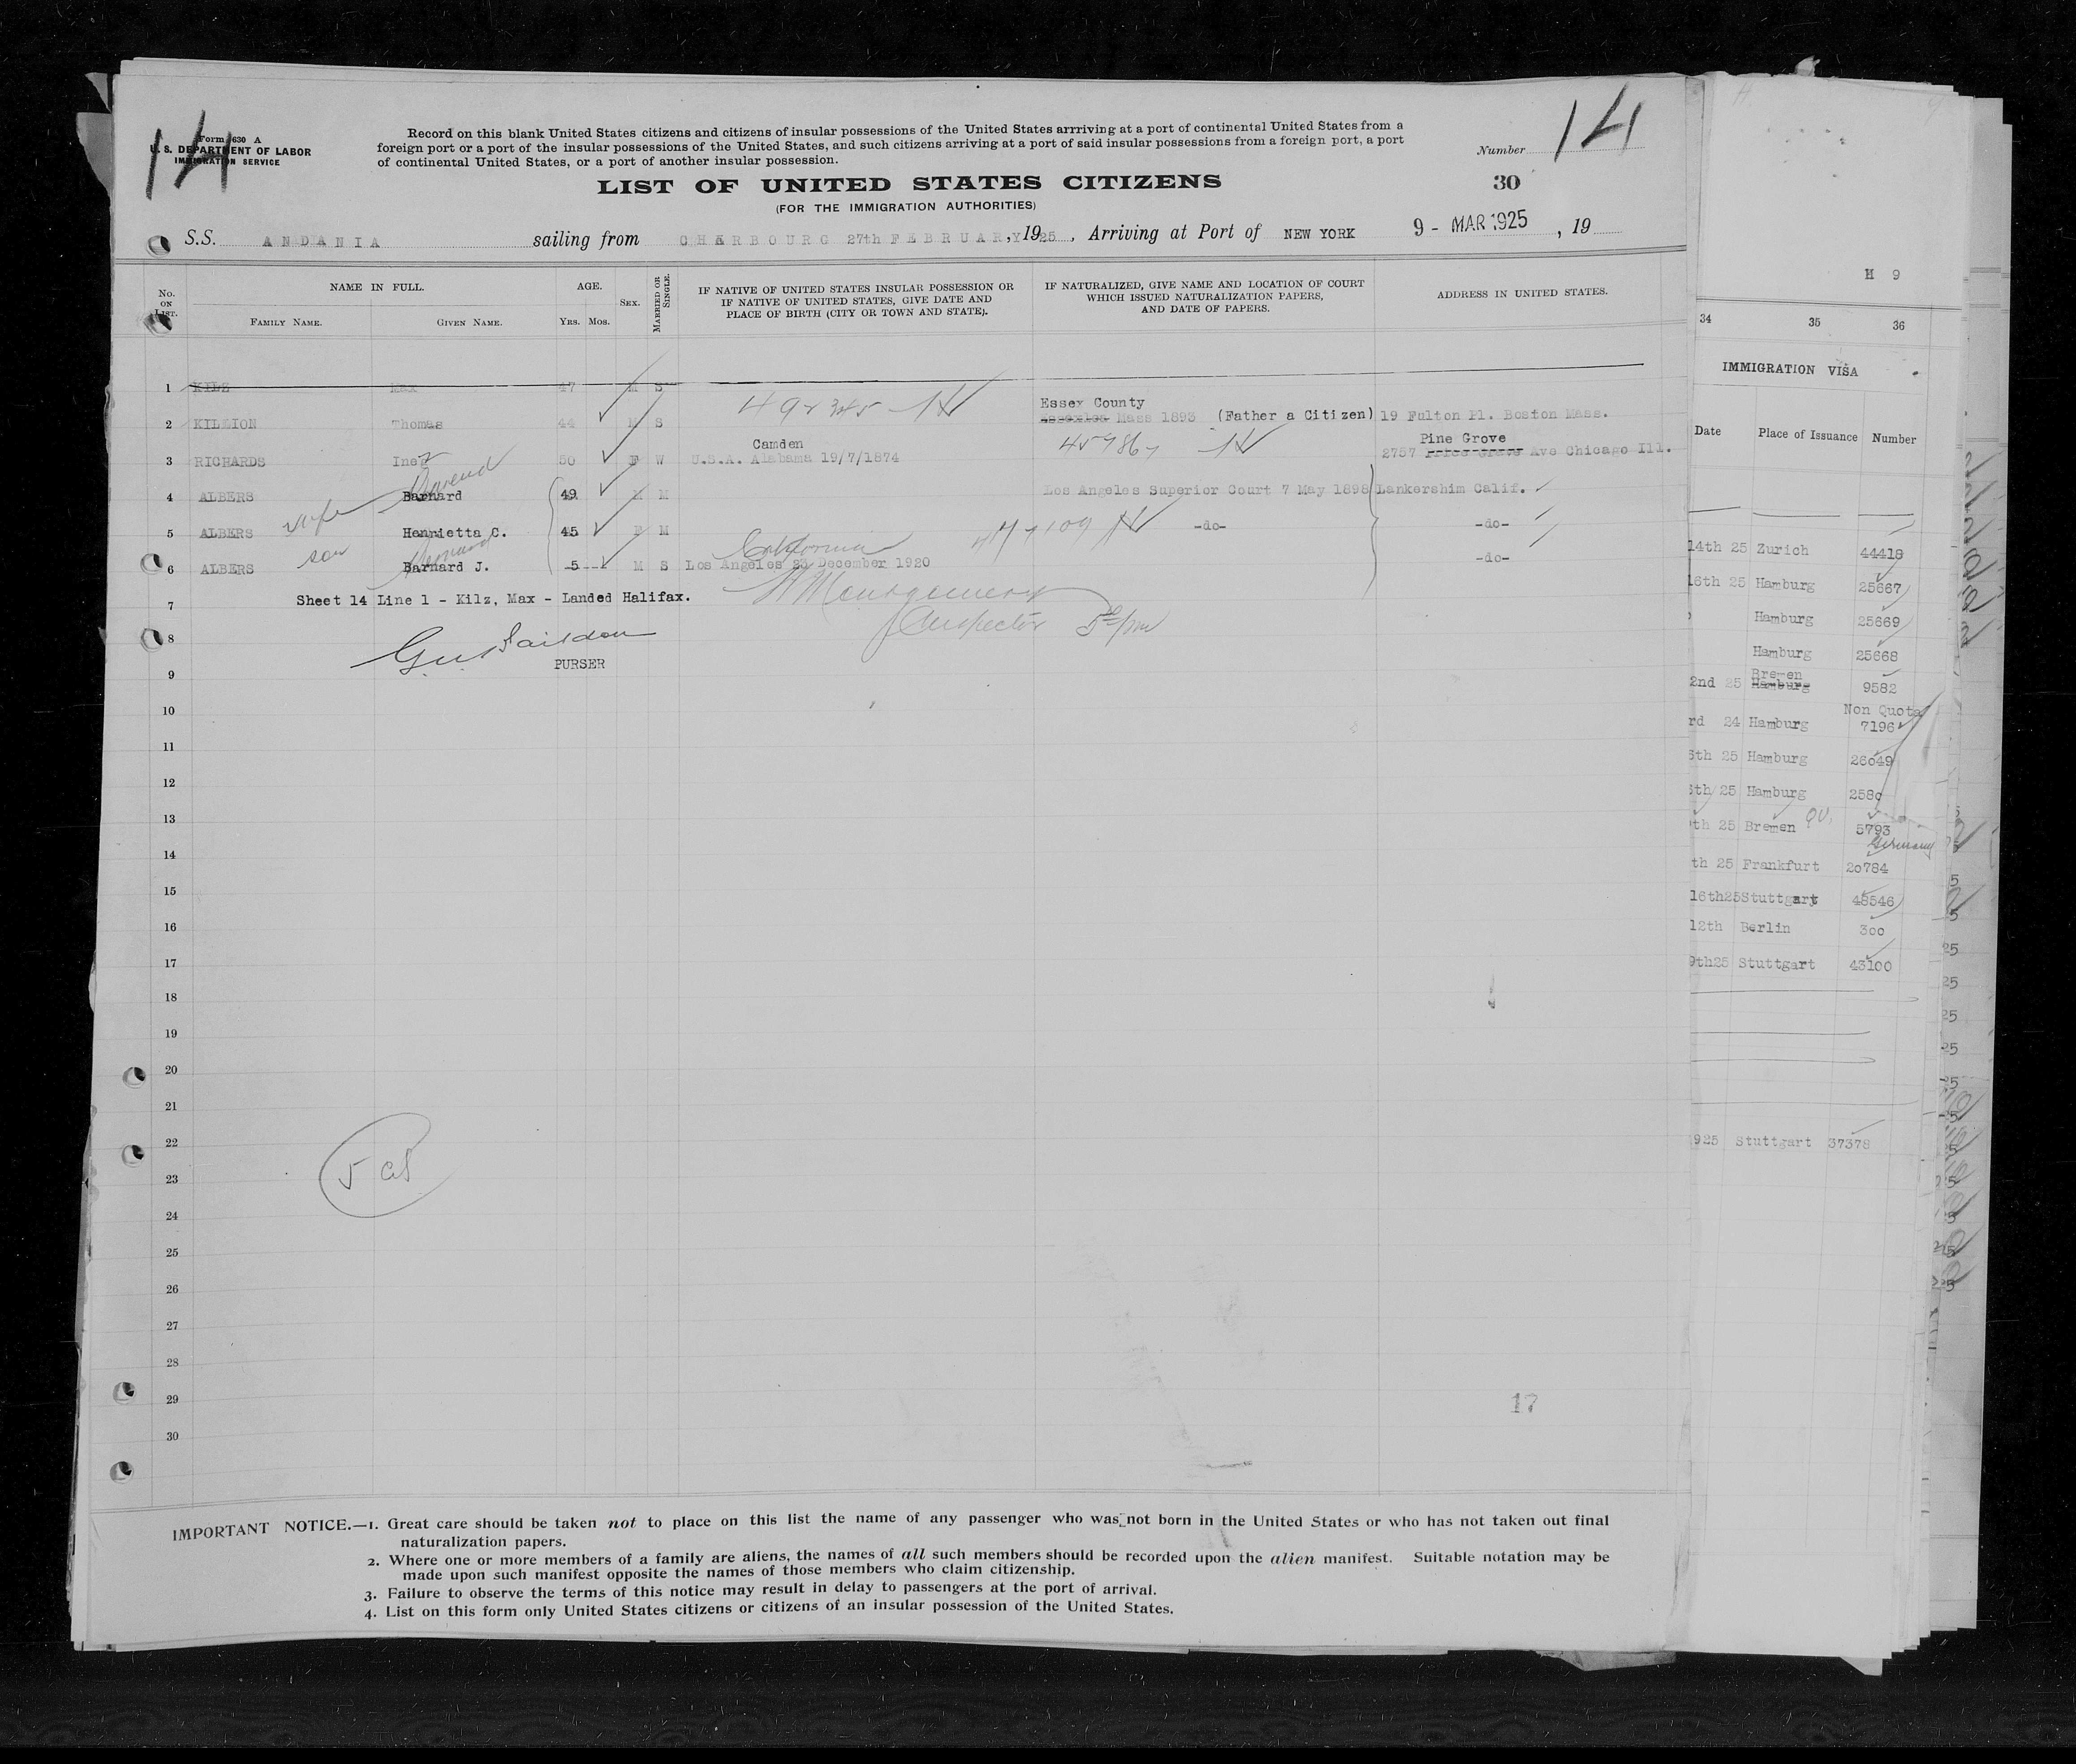 14
Form 630 A
U. S. DEPARTMENT OF LABOR
IMMIGRATION SERVICE
Record on this blank United States citizens and citizens of insular possessions of the United States arrriving at a port of continental United States from a
foreign port or a port of the insular possessions of the United States, and such citizens arriving at a port of said insular possessions from a foreign port, a port
of continental United States, or a port of another insular possession.
Number 14
LIST OF UNITED STATES CITIZENS
30
(FOR THE IMMIGRATION AUTHORITIES)
S.S. ANDANIA sailing from CHERBOURG 27th FEBRUARY, 1925, Arriving at Port of NEW YORK 9 - MAR 1925, 19
No. ON LIST.
NAME IN FULL.
FAMILY NAME.
GIVEN NAME.
AGE.
YRS. MOS.
SEX.
MARRIED OR SINGLE.
IF NATIVE OF UNITED STATES INSULAR POSSESSION OR
IF NATIVE OF UNITED STATES, GIVE DATE AND
PLACE OF BIRTH (CITY OR TOWN AND STATE).
IF NATURALIZED, GIVE NAME AND LOCATION OF COURT
WHICH ISSUED NATURALIZATION PAPERS,
AND DATE OF PAPERS.
ADDRESS IN UNITED STATES.
1 KILZ Max 47 M S
492345
Essex County
2 KILLION Thomas 44 M S Mass 1893 (Father a Citizen) 19 Fulton Pl. Boston Mass.
Camden
Pine Grove
3 RICHARDS Inez 50 F W U.S.A. Alabama 19/7/1874 2757 Ave Chicago Ill.
4 ALBERS Barnard 49 M M Los Angeles Superior Court 7 May 1898 Lankershim Calif.
wife
5 ALBERS Henrietta C. 45 F M -do- -do-
son
Bernard
California
6 ALBERS Barnard J. 5 M S Los Angeles 23 December 1920 -do-
7 Sheet 14 Line 1 - Kilz, Max - Landed Halifax.
Montgomery
Inspector
8
PURSER
9
10
11
12
13
14
15
16
17
18
19
20
21
22
23
24
25
26
27
28
29
30
17
IMPORTANT NOTICE.—1. Great care should be taken not to place on this list the name of any passenger who was not born in the United States or who has not taken out final
naturalization papers.
2. Where one or more members of a family are aliens, the names of all such members should be recorded upon the alien manifest. Suitable notation may be
made upon such manifest opposite the names of those members who claim citizenship.
3. Failure to observe the terms of this notice may result in delay to passengers at the port of arrival.
4. List on this form only United States citizens or citizens of an insular possession of the United States.
H 9
34 35 36
IMMIGRATION VISA
Date Place of Issuance Number
14th 25 Zurich 44418
16th 25 Hamburg 25667
Hamburg 25669
Hamburg 25668
Bremen
2nd 25 Hamburg 9582
Non Quota
rd 24 Hamburg 7196
5th 25 Hamburg 26049
25 Hamburg 2580
th 25 Bremen 5793
Germany
th 25 Frankfurt 20784
16th25 Stuttgart 48546
12th Berlin 300
9th25 Stuttgart 43100
925 Stuttgart 37378